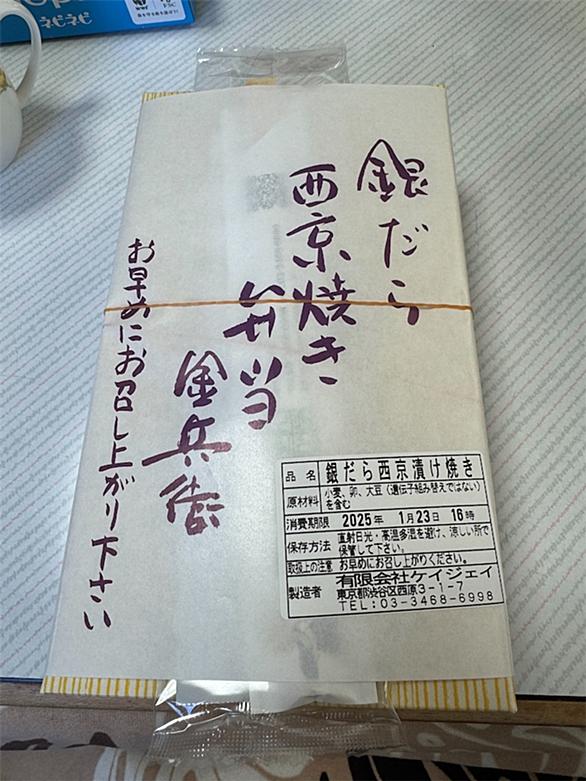 ネピネピ
銀だら
西京焼き
弁当
金兵衛
お早めにお召し上がり下さい
品名 銀だら西京漬け焼き
原材料 小麦、卵、大豆（遺伝子組み替えではない）
を含む
消費期限 2025年 1月23日 16時
保存方法 直射日光・高温多湿を避け、涼しい所で
保管して下さい。
取扱上の注意 お早めにお召し上がりください。
製造者 有限会社ケイジェイ
東京都渋谷区西原3-1-7
TEL:03-3468-6998